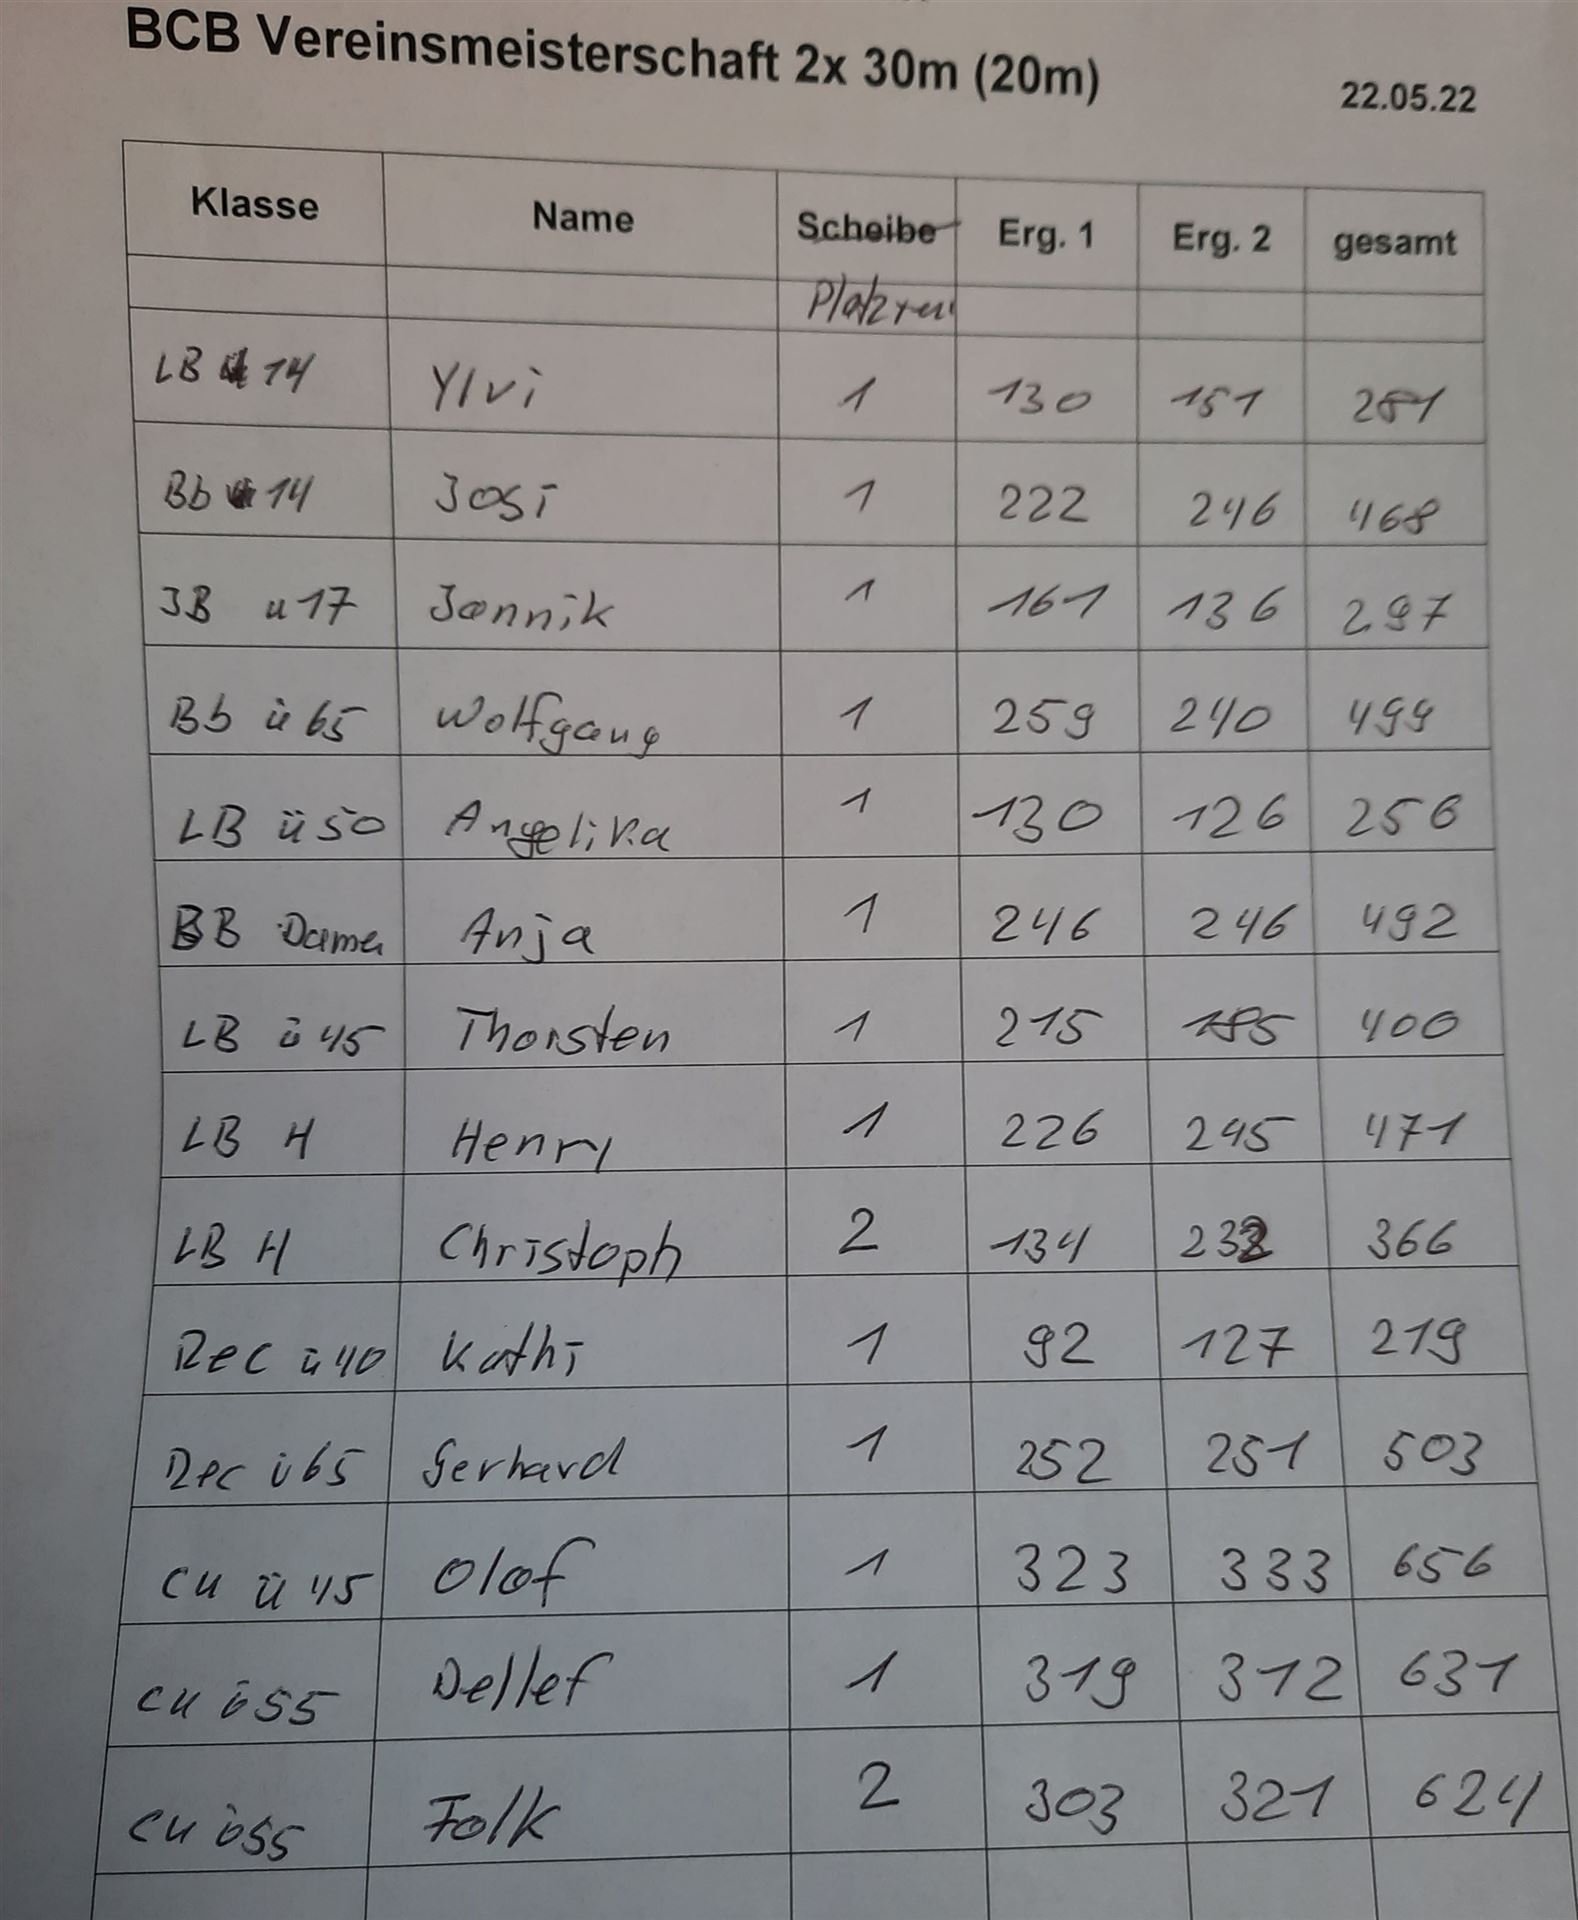 BCB Vereinsmeisterschaft 2x 30m (20m)
22.05.22
Klasse Name Scheibe Erg. 1 Erg. 2 gesamt
LB u 14 Ylvi 1 130 151 281
Bb u 14 Josi 1 222 246 468
JB u17 Jannik 1 161 136 297
Bb ü 65 Wolfgang 1 259 240 499
LB ü 50 Angelika 1 130 126 256
BB Damen Anja 1 246 246 492
LB ü 45 Thorsten 1 215 185 400
LB H Henry 1 226 245 471
LB H Christoph 2 134 232 366
Rec ü 40 Kathi 1 92 127 219
Rec ü 65 Gerhard 1 252 251 503
CU ü 45 Olaf 1 323 333 656
CU ü55 Detlef 1 319 312 631
CU ü55 Falk 2 303 321 624